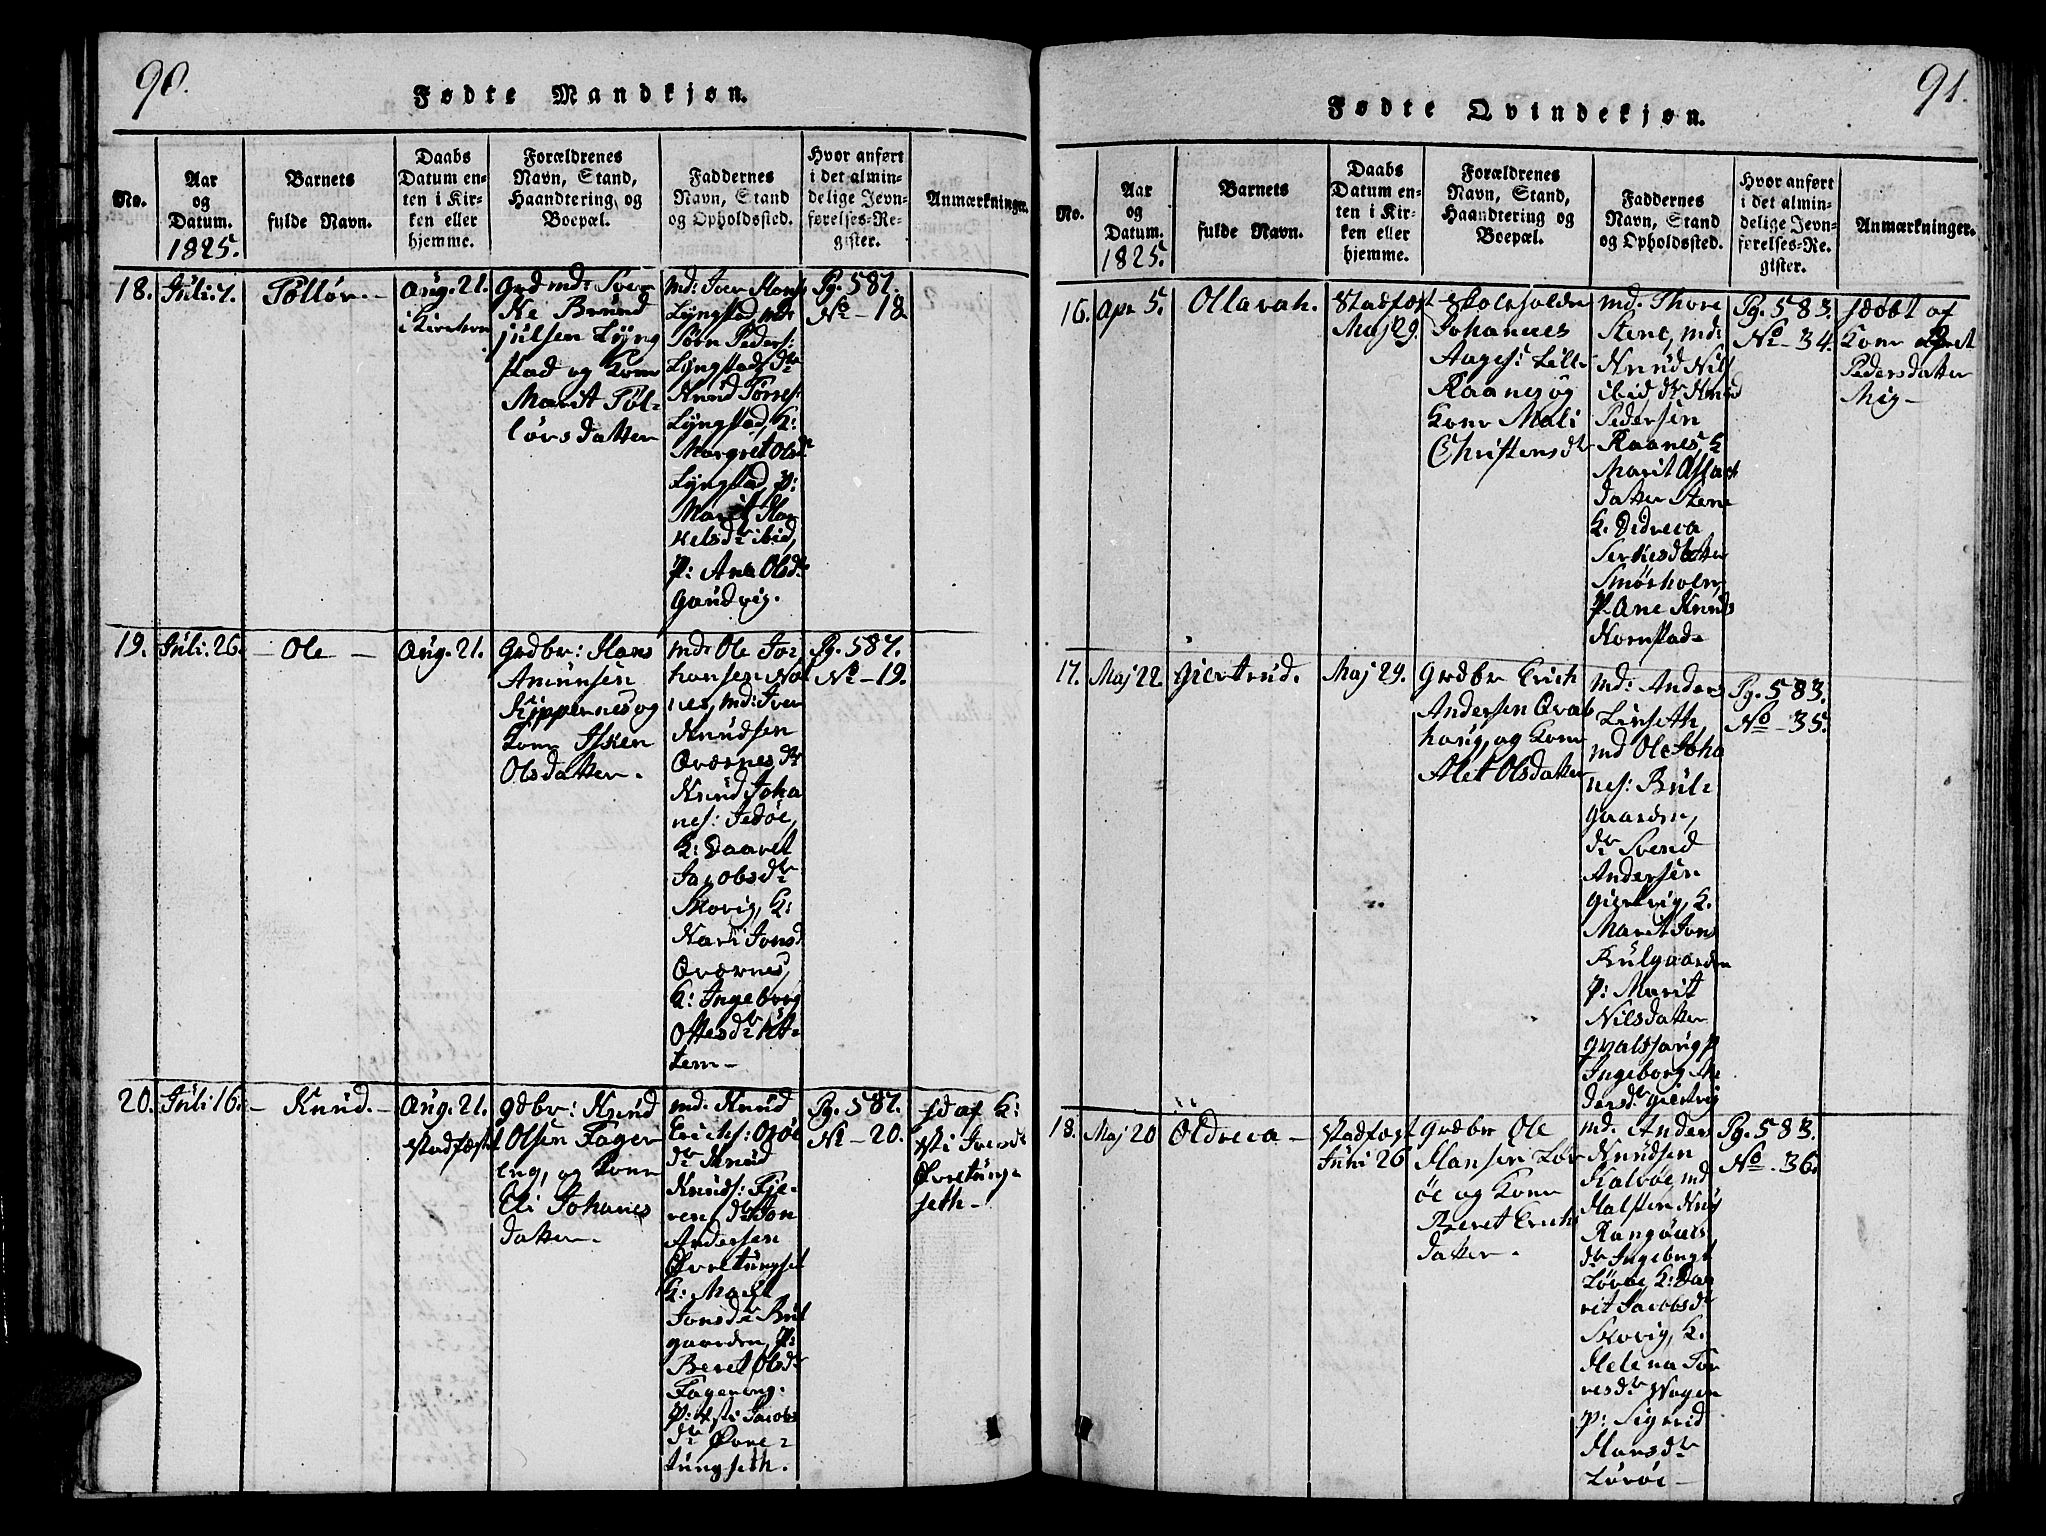 90.
Fødte Mandkjøn.
No.
Aar
og
Datum.
1825.
Barnets
fulde Navn.
Daabs
Datum en-
ten i Kir-
ken eller
hjemme.
Forældrenes
Navn, Stand,
Haandtering og
Boepæl.
Faddernes
Navn, Stand
og Opholdssted.
Hvor anført
i det almin-
delige Jevn-
førelses-Re-
gister.
Anmærkninger.
18.
Juli. 7.
Tollör.
Aug. 21.
i Kirchen
Grd md: Sver
Ke Brund
julsen Lÿng
stad og Kone
Marit Töl-
lörsdatter
md: Iver Hans
Lÿngstad, md:
Törn Peders:
Lÿngstad, dr
Knud Torres:
Lÿngstad, K:
Margret Olsdr
Lÿngstad, P:
Marit Han
kelsdr ibid,
P: Ane Olsdr
Gaudvig.
Pg. 587.
No - 18
19.
Juli. 26.
- Ole -
Aug. 21.
Grdbr: Hans
Amunsen
Kippernes og
Kone
Olsdatter.
md: Ole Jo:
hansen
nes, md: Iver
Knudsen
Qværnes, dr
Knud Joha
nes:
K: Daaret
Jacobsdr
Skovig, K:
Kari Jonsd
Qværnes,
K: Ingeborg
Ottesdr
tem-
Pg. 587.
No - 19.
20.
Juli 16.
- Knud. -
Aug. 21.
stadfæstet
Gdbr: Knud
Olsen Fager
eng, og Kone
Eli Johanes
datter.
md. Knud
Erichs:
dr Knud
Knuds: Fje-
ren, dr Jon
Andersen
Øvretungset
K: Marit
Jonsdr Bul
gaarden, P:
Beret Olsdr
Fagereng:
P: Jacobs
dr Øvre-
tungseth.
Pg. 587.
No - 20.
fd af K:
Øvretung-
seth-
91.
Fødte Qvindekjøn.
No.
Aar
og
Datum.
1825.
Barnets
fulde Navn.
Daabs
Datum en-
ten i Kir-
ken eller
hjemme.
Forældrenes
Navn, Stand,
Haandtering og
Boepæl.
Faddernes
Navn, Stand
og Opholdssted.
Hvor anført
i det almin-
delige Jevn-
førelses-Re-
gister.
Anmærkninger.
16.
Apr 5.
Ollavah.
Stadfæst
Maj 29.
Skoleholder
Johannes
Aages: Lill-
Raanes og
Kone Mali
Christensdr
md. Thore
Stene, md:
Knud Nils
ibid, dr Knud
Pedersen
Raanes, K
Marit
datter Stene
K. Dedreca
Smörholm,
P. Ane Knuds
Kornstad-
Pg. 583.
No - 34.
fdøbt af
Kone Beret
Pedersdatter
Mig-
17.
Maj 22.
Giertrud.
Maj 29.
Grdbr Erich
Andersen Qval
houg, og Kone
Alet Olsdatter
md: Anders
Linseth,
md Ole Joha
nes: Bul-
gaarden,
dr Svend
Andersen
Giertvig, K.
Marit Jons
Bulgaarden
P: Marit
Nilsdatter
Ingeborg An
dersdr Giertvig
Pg. 583.
No - 35.
18.
Maj 20
Oldreca -
Stadfæst
Juni 26
Grdbr Ole
Hansen Lör
öe og Kone
Beret Erichs
datter.
md. Ander
Knudsen
Kalvöe, md
Halsten
dr Ingebrigt
Löröe K: Daa
rit Jacobsdr
Skovig, K.
Helena Tor
resdr Vogen
P: Sigrid
Hansdr
Löröe-
Pg. 583.
No - 36.